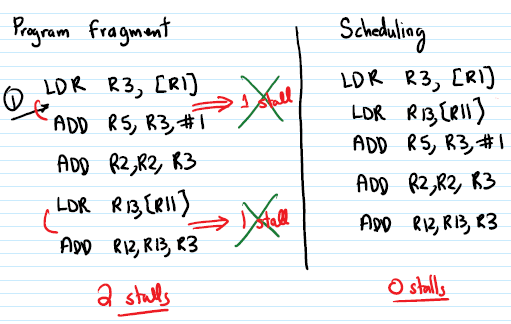 Program Fragment
① LDR R3, [R1]
1 stall
ADD R5, R3, #1
ADD R2, R2, R3
LDR R13, [R11]
1 stall
ADD R12, R13, R3
2 stalls
Scheduling
LDR R3, [R1]
LDR R13, [R11]
ADD R5, R3, #1
ADD R2, R2, R3
ADD R12, R13, R3
0 stalls